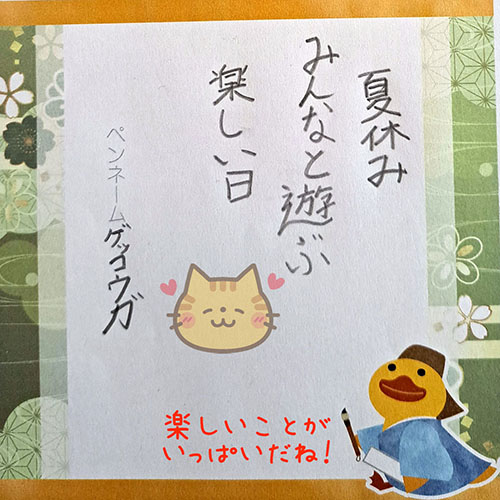 夏休み
みんなと遊ぶ
楽しい日
ペンネームゲッコウガ
楽しいことが
いっぱいだね！